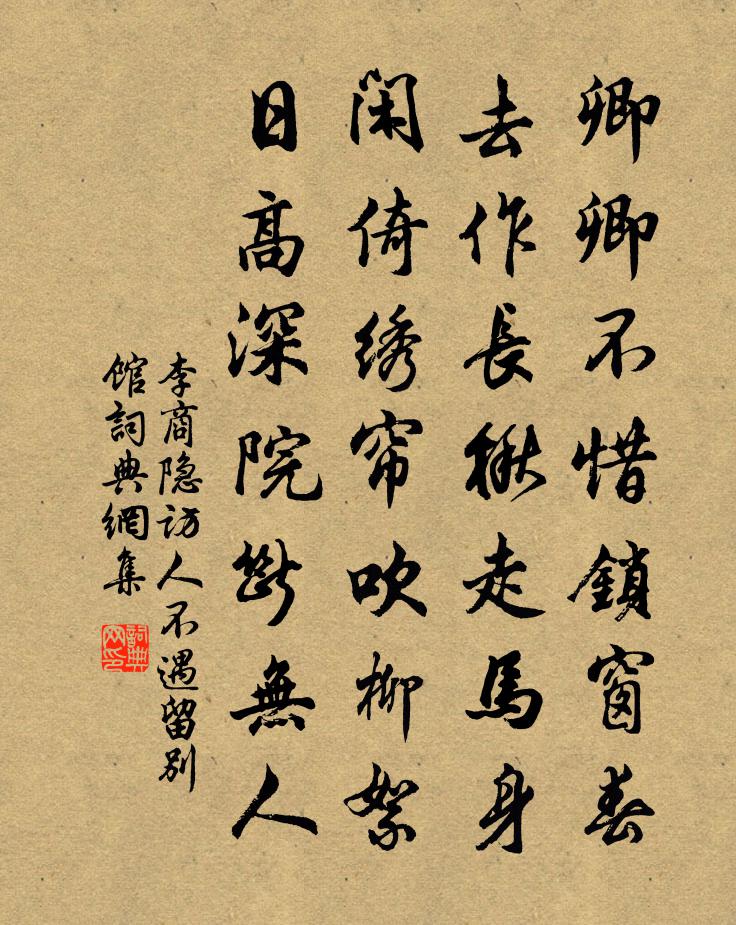 卿卿不惜鎖窗春
去作長楸走馬身
闲倚綉帘吹柳絮
日高深院斷無人
李商隐访人不遇留別
館詞典網集
詞典
网印